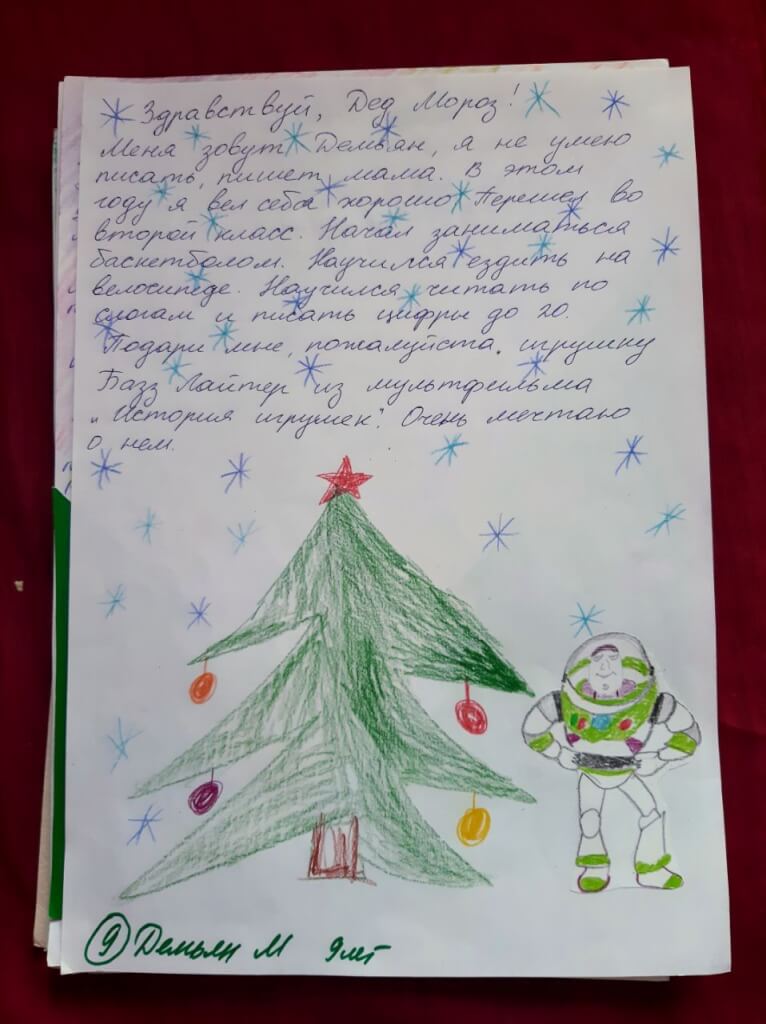 Здравствуй, Дед Мороз!
Меня зовут Демьян, я не умею
писать, пишет мама. В этом
году я вел себя хорошо. Перешел во
второй класс. Начал заниматься
баскетболом. Научился ездить на
велосипеде. Научился читать по
слогам и писать цифры до 20.
Подари мне, пожалуйста, игрушку
Базз Лайтер из мультфильма
"История игрушек". Очень мечтаю
о нем.
9 Демьян М 9 лет